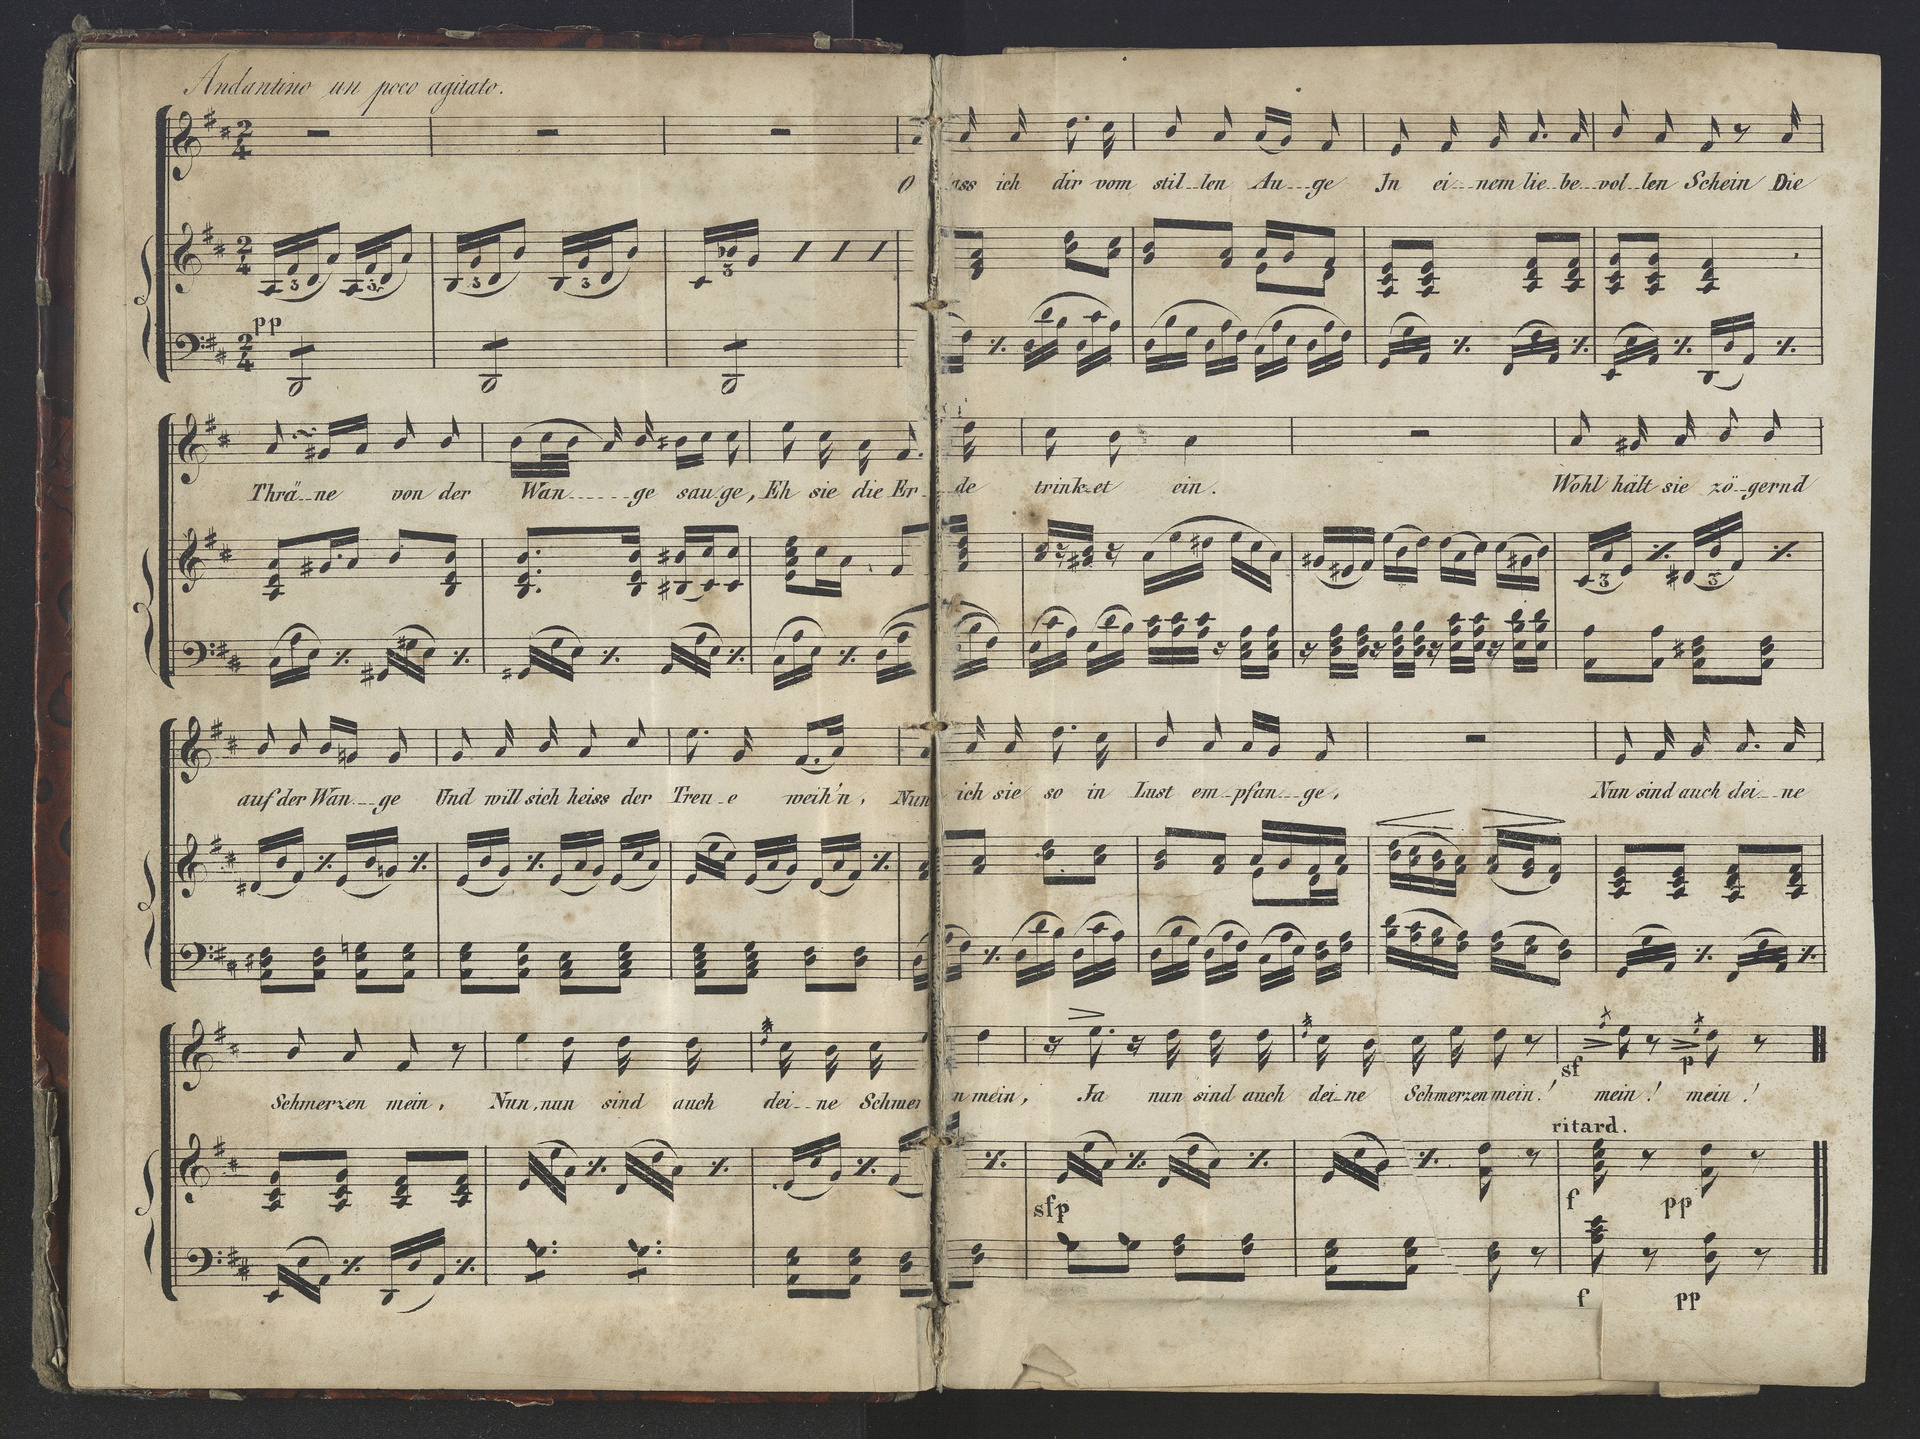 Andantino un poco agitato.
O ass ich dir vom stil__len Au___ge Jn ei__nem lie_be__vol__len Schein Die
3 3 3 3 3
pp
Thrä__ne von der Wan______ge sau_ge, Eh sie die Er__de trink_et ein. Wohl hält sie zö__gernd
3 3
auf der Wan___ge Und will sich heiss der Treu_e weih'n, Nun ich sie so in Lust em__pfan__ge, Nun sind auch dei__ne
sf p
Schmerzen mein, Nun, nun sind auch dei__ne Schmer n mein, Ja nun sind auch dei_ne Schmerzen mein! mein! mein!
ritard.
sfp f pp
f pp